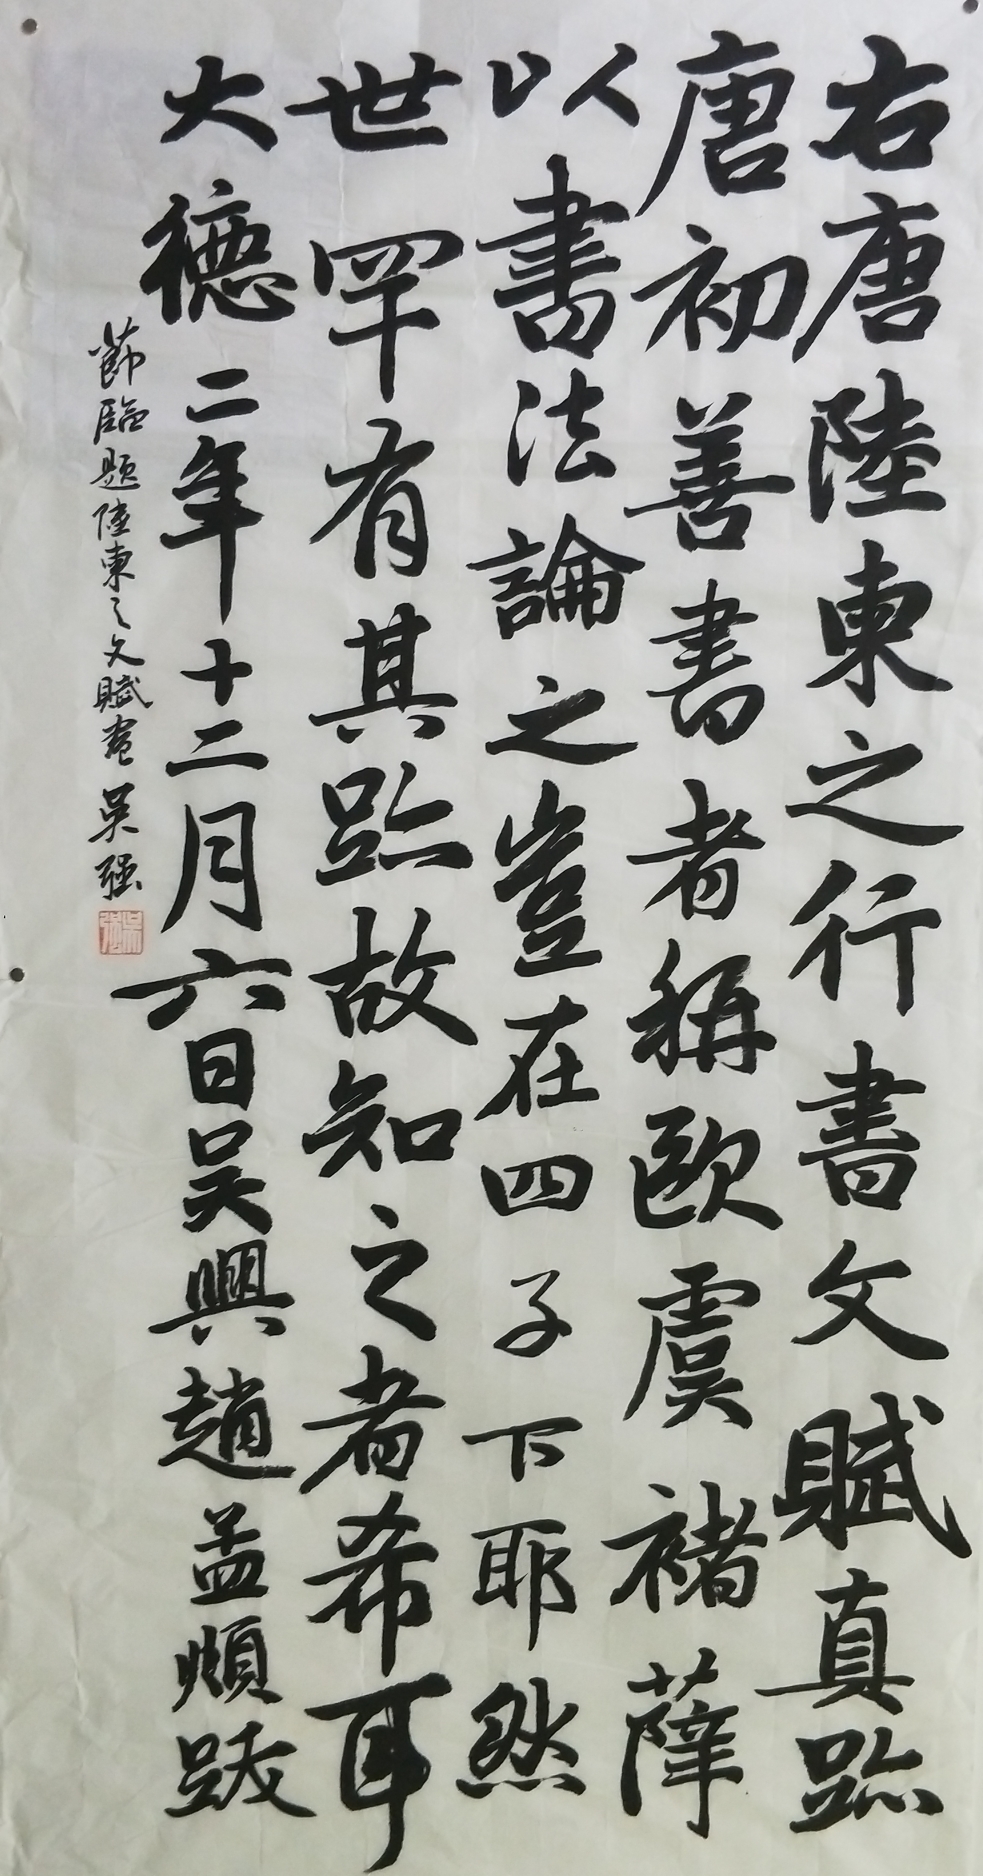 右唐陸柬之行書文賦真跡
唐初善書者稱歐虞褚薛
以書法論之豈在四子下耶然
世罕有其跡故知之者希耳
大德二年十二月六日吳興趙孟頫跋
節臨題陸柬之文賦卷吴强
吴强